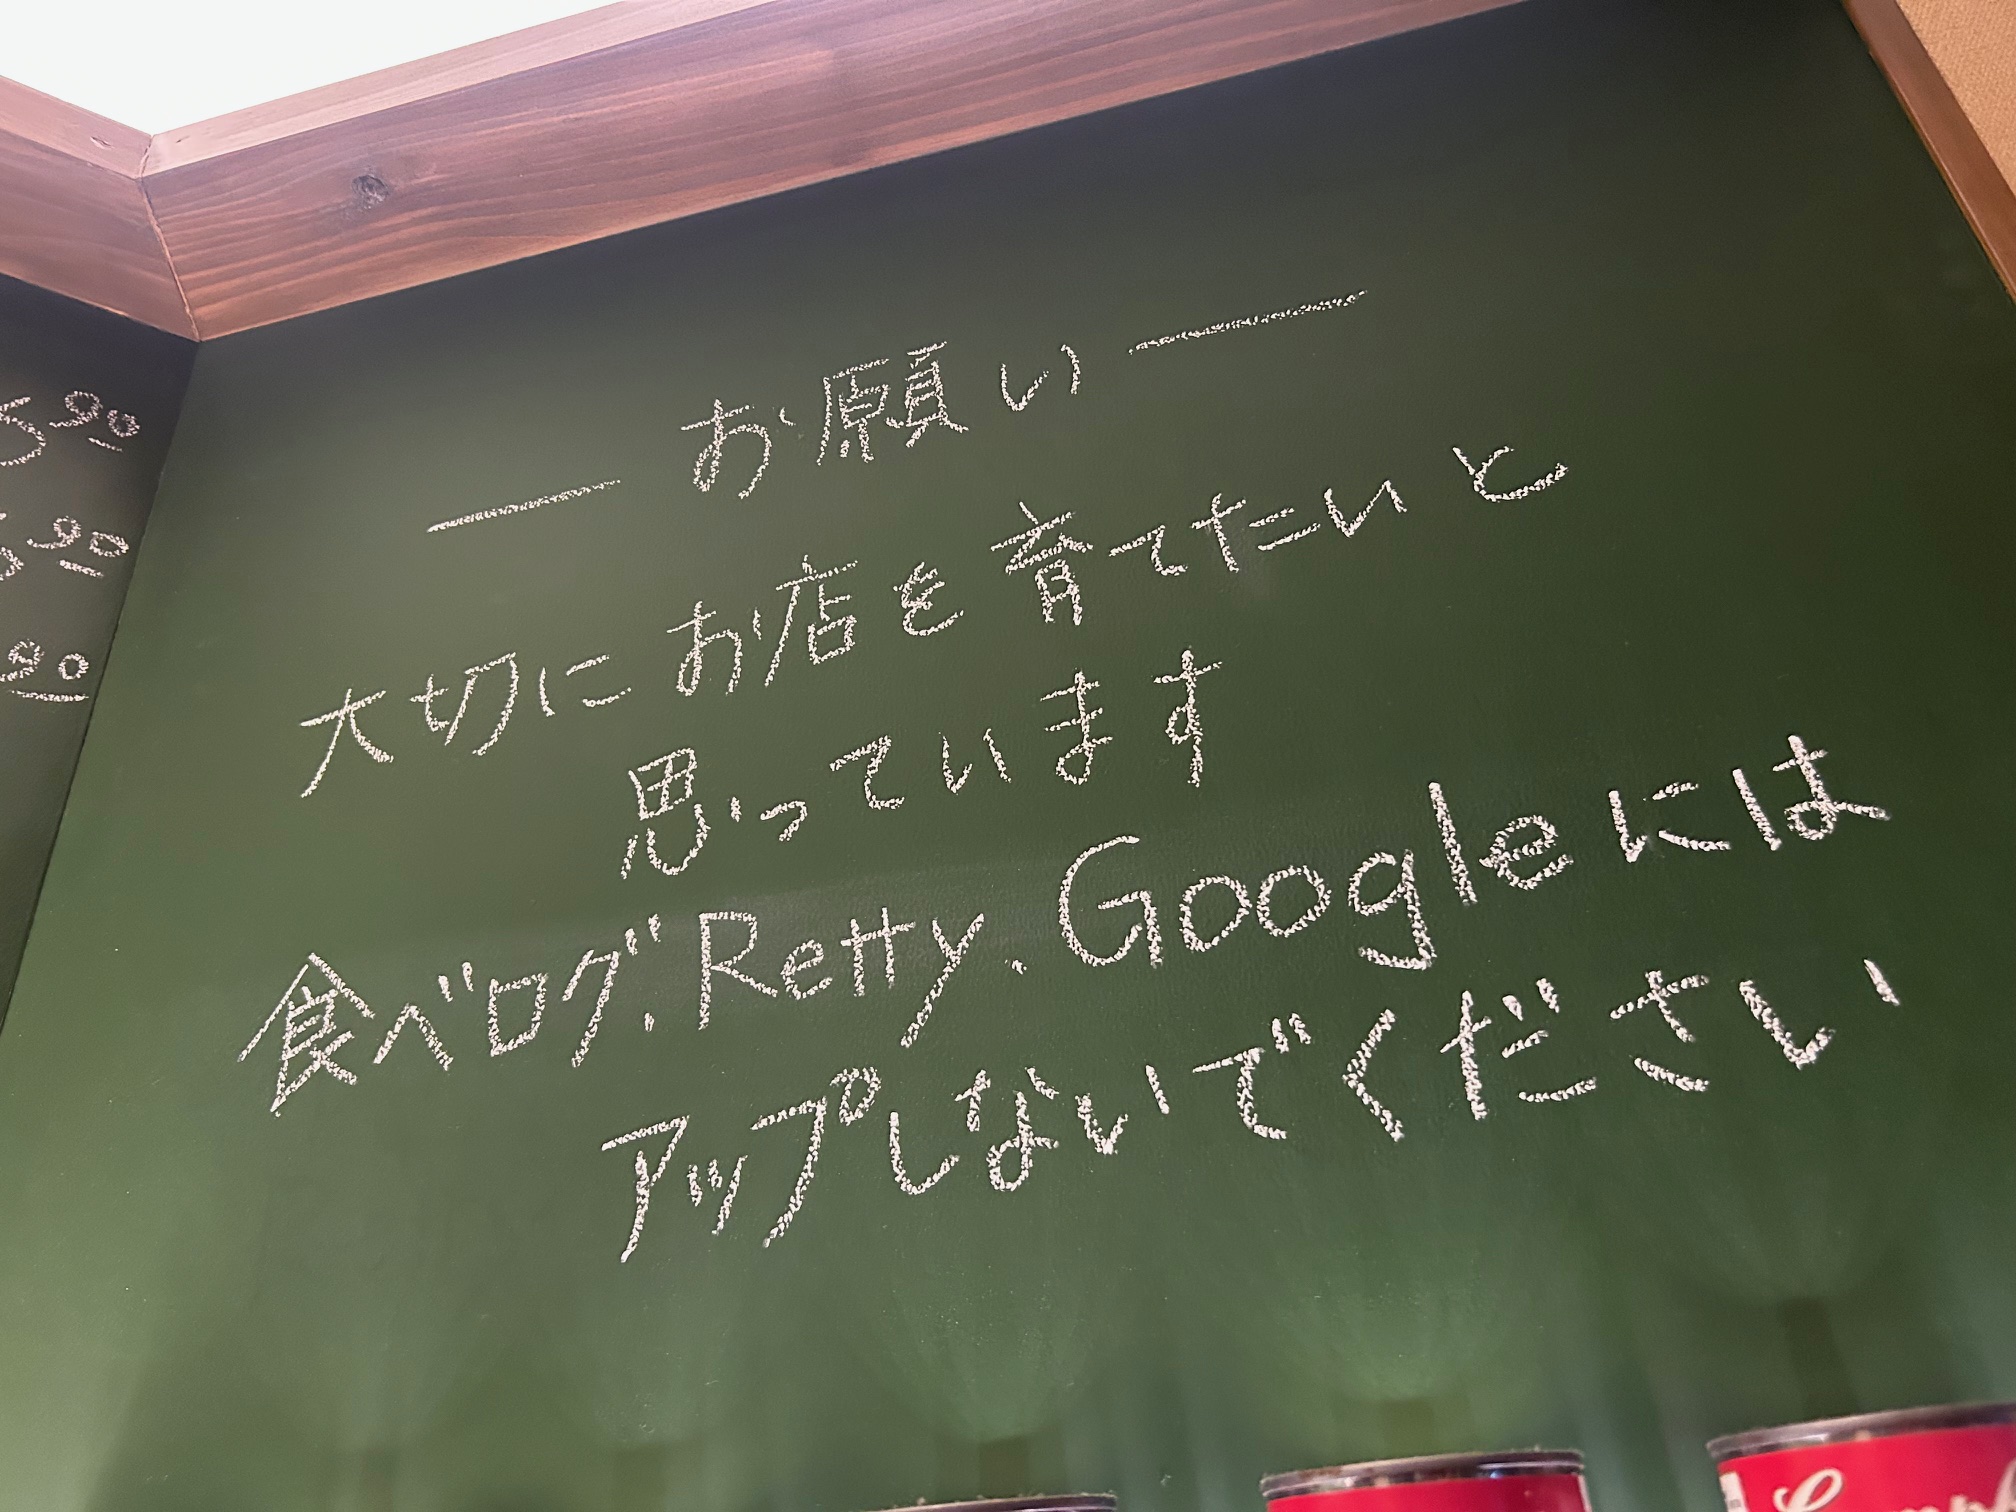 お願い
大切にお店を育てたいと
思っています
食べログ、Retty、Googleには
アップしないでください